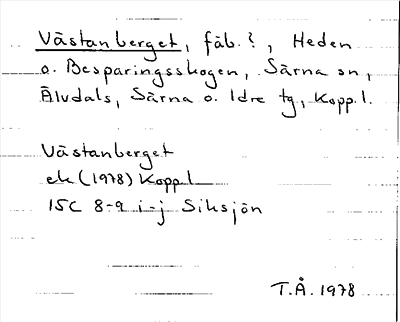 Västanberget, fäb.?, Heden
o. Besparingsskogen, Särna sn,
Älvdals, Särna o. Idre tg, Kopp. l.
Västanberget
ek (1978) Kopp l
15C 8-9 i-j Siksjön
T.Å. 1978